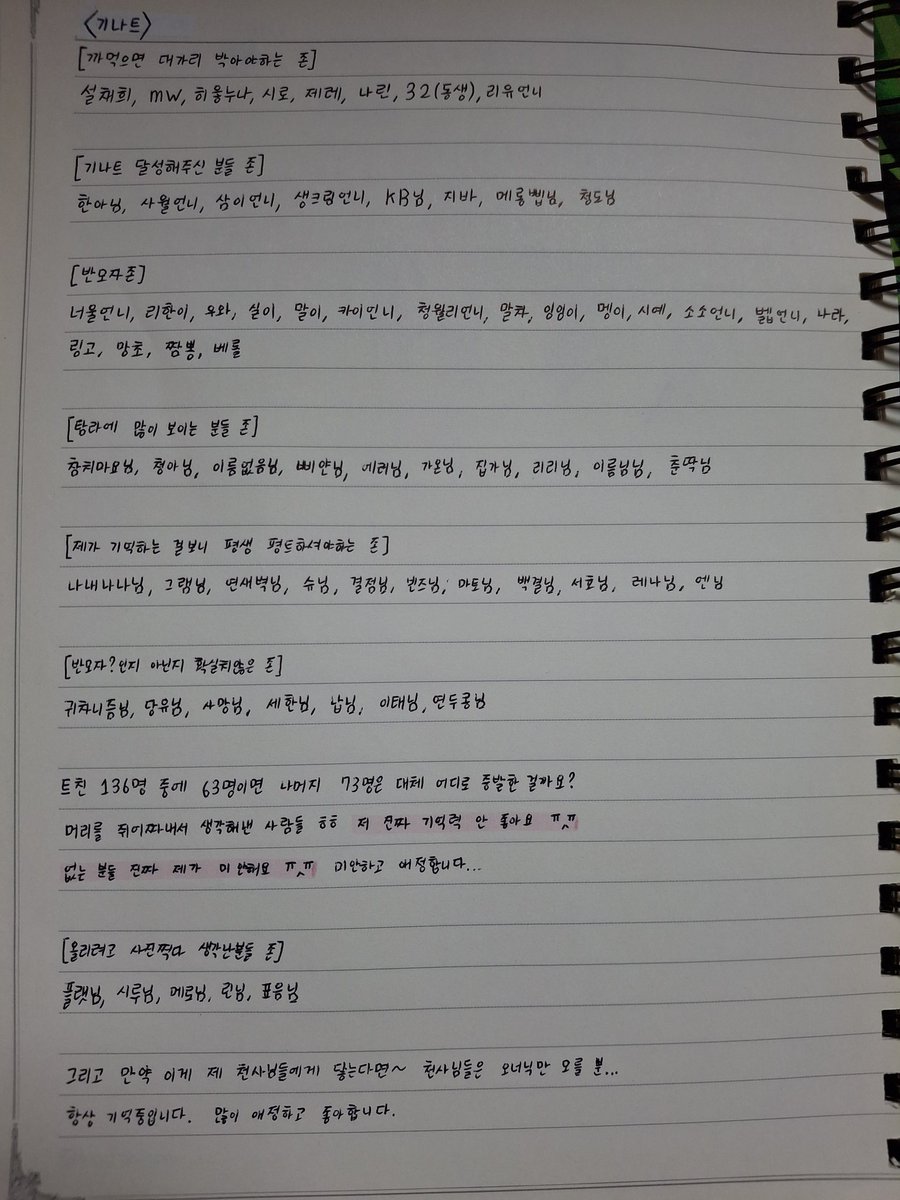 <기나트>
[까먹으면 대가리 박아야하는 존]
설채희, mw, 히웅누나, 시로, 제레, 나린, 32(동생), 리유언니
[기나트 달성해주신 분들 존]
한아님, 사월언니, 삼이언니, 생크림언니, KB님, 지바, 메롱쀕님, 청도님
[반모자존]
너울언니, 리한이, 유와, 실이, 말이, 카이언니, 청월리언니, 말콱, 잉잉이, 멩이, 시예, 소소언니, 벨언니, 나라,
링고, 망초, 짬뽕, 베롤
[탐라에 많이 보이는 분들 존]
참치마요님, 청아님, 이름없음님, 삐얀님, 에러님, 가온님, 집가님, 리리님, 이름님님, 춘딱님
[제가 기억하는 걸보니 평생 평트하셔야하는 존]
나내나나님, 그램님, 연새벽님, 슈님, 결정님, 빈즈님, 마토님, 백결님, 서호님, 레나님, 엔님
[반모자?인지 아닌지 확실치않은 존]
귀차니즘님, 당유님, 사망님, 세한님, 납님, 이태님, 연두콩님
트친 136명 중에 63명이면 나머지 73명은 대체 어디로 증발한 걸까요?
머리를 쥐어짜내서 생각해낸 사람들 ㅎㅎ 저 진짜 기억력 안 좋아요 ㅠ^ㅠ
없는 분들 진짜 제가 미안해요 ㅠ^ㅠ 미안하고 애정합니다...
[올리려고 사진찍다 생각난분들 존]
플랫님, 시루님, 메로님, 린님, 표응님
그리고 만약 이게 제 천사님들에게 닿는다면~ 천사님들은 오너님만 모를 뿐...
항상 기억중입니다. 많이 애정하고 좋아합니다.